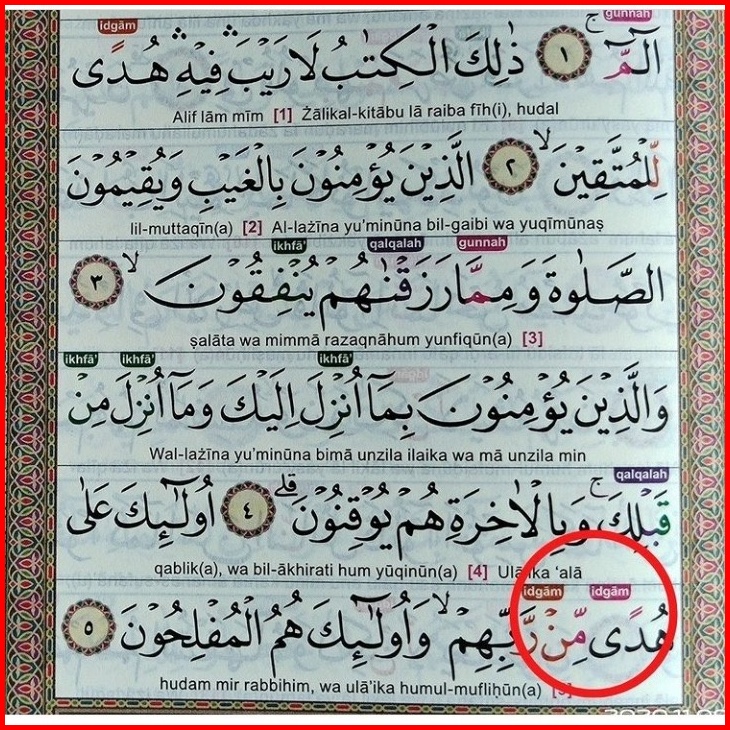 gunnah
idgām
الٓمّٓ ۚ ١ ذٰلِكَ الْكِتٰبُ لَا رَيْبَ ۛ فِيْهِ ۛ هُدًى
Alif lām mīm [1] Żālikal-kitābu lā raiba fīh(i), hudal
لِّلْمُتَّقِيْنَ ۙ ٢ الَّذِيْنَ يُؤْمِنُوْنَ بِالْغَيْبِ وَيُقِيْمُوْنَ
lil-muttaqīn(a) [2] Al-lażīna yu'minūna bil-gaibi wa yuqīmūnaṣ
gunnah qalqalah ikhfā'
الصَّلٰوةَ وَمِمَّا رَزَقْنٰهُمْ يُنْفِقُوْنَ ۙ ٣
ṣalāta wa mimmā razaqnāhum yunfiqūn(a) [3]
ikhfā' ikhfā' ikhfā'
وَالَّذِيْنَ يُؤْمِنُوْنَ بِمَآ اُنْزِلَ اِلَيْكَ وَمَآ اُنْزِلَ مِنْ
Wal-lażīna yu'minūna bimā unzila ilaika wa mā unzila min
qalqalah
قَبْلِكَ ۚ وَبِالْاٰخِرَةِ هُمْ يُوْقِنُوْنَ ۗ ٤ اُولٰۤىِٕكَ عَلٰى
qablik(a), wa bil-ākhirati hum yūqinūn(a) [4] Ulā'ika 'alā
idgām idgām
هُدًى مِّنْ رَّبِّهِمْ ۙ وَاُولٰۤىِٕكَ هُمُ الْمُفْلِحُوْنَ ٥
hudam mir rabbihim, wa ulā'ika humul-mufliḥūn(a) [5]